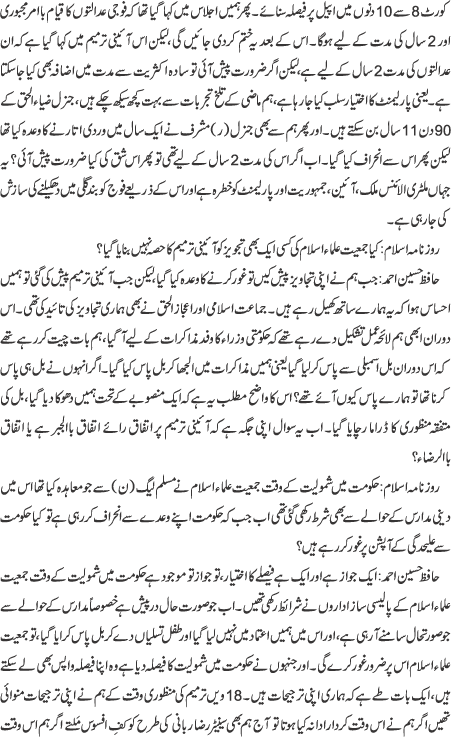 کورٹ 8 سے 10 دنوں میں اپیل پر فیصلہ سنائے۔ پھر ہمیں اجلاس میں کہا گیا تھا کہ فوجی عدالتوں کا قیام بامر مجبوری
اور 2 سال کی مدت کے لیے ہوگا۔ اس کے بعد یہ ختم کردی جائیں گی، لیکن اس آئینی ترمیم میں کہا گیا ہے کہ ان
عدالتوں کی مدت 2 سال کے لیے ہے، لیکن اگر ضرورت پیش آئی تو سادہ اکثریت سے مدت میں اضافہ بھی کیا جاسکتا
ہے۔ یعنی پارلیمنٹ کا اختیار سلب کیا جارہا ہے، ہم ماضی کے تلخ تجربات سے بہت کچھ سیکھ چکے ہیں، جنرل ضیاء الحق کے
90 دن 11 سال بن سکتے ہیں۔ اور پھر ہم سے بھی جنرل (ر) مشرف نے ایک سال میں وردی اتارنے کا وعدہ کیا تھا
لیکن پھر اس سے انحراف کیا گیا۔ اب اگر اس کی مدت 2 سال کے لیے تھی تو پھر اس شق کی کیا ضرورت پیش آئی؟ یہ
جہاں ملٹری الائنس ملک، آئین، جمہوریت اور پارلیمنٹ کو خطرہ ہے اور اس کے ذریعے فوج کو بند گلی میں دھکیلنے کی سازش
کی جارہی ہے۔
روزنامہ اسلام: کیا جمعیت علماء اسلام کی کسی ایک بھی تجویز کو آئینی ترمیم کا حصہ نہیں بنایا گیا؟
حافظ حسین احمد: جب ہم نے اپنی تجاویز پیش کیں تو غور کرنے کا وعدہ کیا گیا لیکن جب آئینی ترمیم پیش کی گئی تو ہمیں
احساس ہوا کہ یہ ہمارے ساتھ کھیل رہے ہیں۔ جماعت اسلامی اور اعجاز الحق نے بھی ہماری تجاویز کی تائید کی تھی۔ اس
دوران ابھی ہم لائحہ عمل تشکیل دے رہے تھے کہ حکومتی وزراء کا وفد مذاکرات کے لیے آگیا، ہم بات چیت کر رہے تھے
کہ اس دوران بل اسمبلی سے پاس کرلیا گیا یعنی ہمیں مذاکرات میں الجھا کر بل پاس کیا گیا۔ اگر انہوں نے بل ہی پاس
کرنا تھا تو ہمارے پاس کیوں آئے تھے؟ اس کا واضح مطلب یہ ہے کہ ایک منصوبے کے تحت ہمیں دھوکا دیا گیا، بل کی
متفقہ منظوری کا ڈراما رچایا گیا۔ اب یہ سوال اپنی جگہ ہے کہ آئینی ترمیم پر اتفاق رائے اتفاق بالجبر ہے یا اتفاق
بالرضاء؟
روزنامہ اسلام: حکومت میں شمولیت کے وقت جمعیت علماء اسلام نے مسلم لیگ (ن) سے جو معاہدہ کیا تھا اس میں
دینی مدارس کے حوالے سے بھی شرط رکھی گئی تھی اب جب کہ حکومت اپنے وعدے سے انحراف کر رہی ہے تو کیا حکومت
سے علیحدگی کے آپشن پر غور کر رہے ہیں؟
حافظ حسین احمد: ایک جواز ہے اور ایک ہے فیصلے کا اختیار، تو جواز تو موجود ہے حکومت میں شمولیت کے وقت جمعیت
علماء اسلام کے پالیسی ساز اداروں نے شرائط رکھی تھیں۔ اب جو صورت حال درپیش ہے خصوصاً مدارس کے حوالے سے
جو صورتحال سامنے آرہی ہے، اور اس میں ہمیں اعتماد میں نہیں لیا گیا اور طفل تسلیاں دے کر بل پاس کرالیا گیا، تو جمعیت
علماء اسلام اس پر ضرور غور کرے گی۔ اور جنہوں نے حکومت میں شمولیت کا فیصلہ دیا ہے وہ اپنا فیصلہ واپس بھی لے سکتے
ہیں، ایک بات طے ہے کہ ہماری اپنی ترجیحات ہیں۔ 18 ویں ترمیم کی منظوری وقت کے ہم نے اپنی ترجیحات منوائی
تھیں اگر ہم نے اس وقت کردار ادا نہ کیا ہوتا تو آج ہم بھی سینیٹر رضا ربانی کی طرح کو کف افسوس مَلتے اگر ہم اس وقت